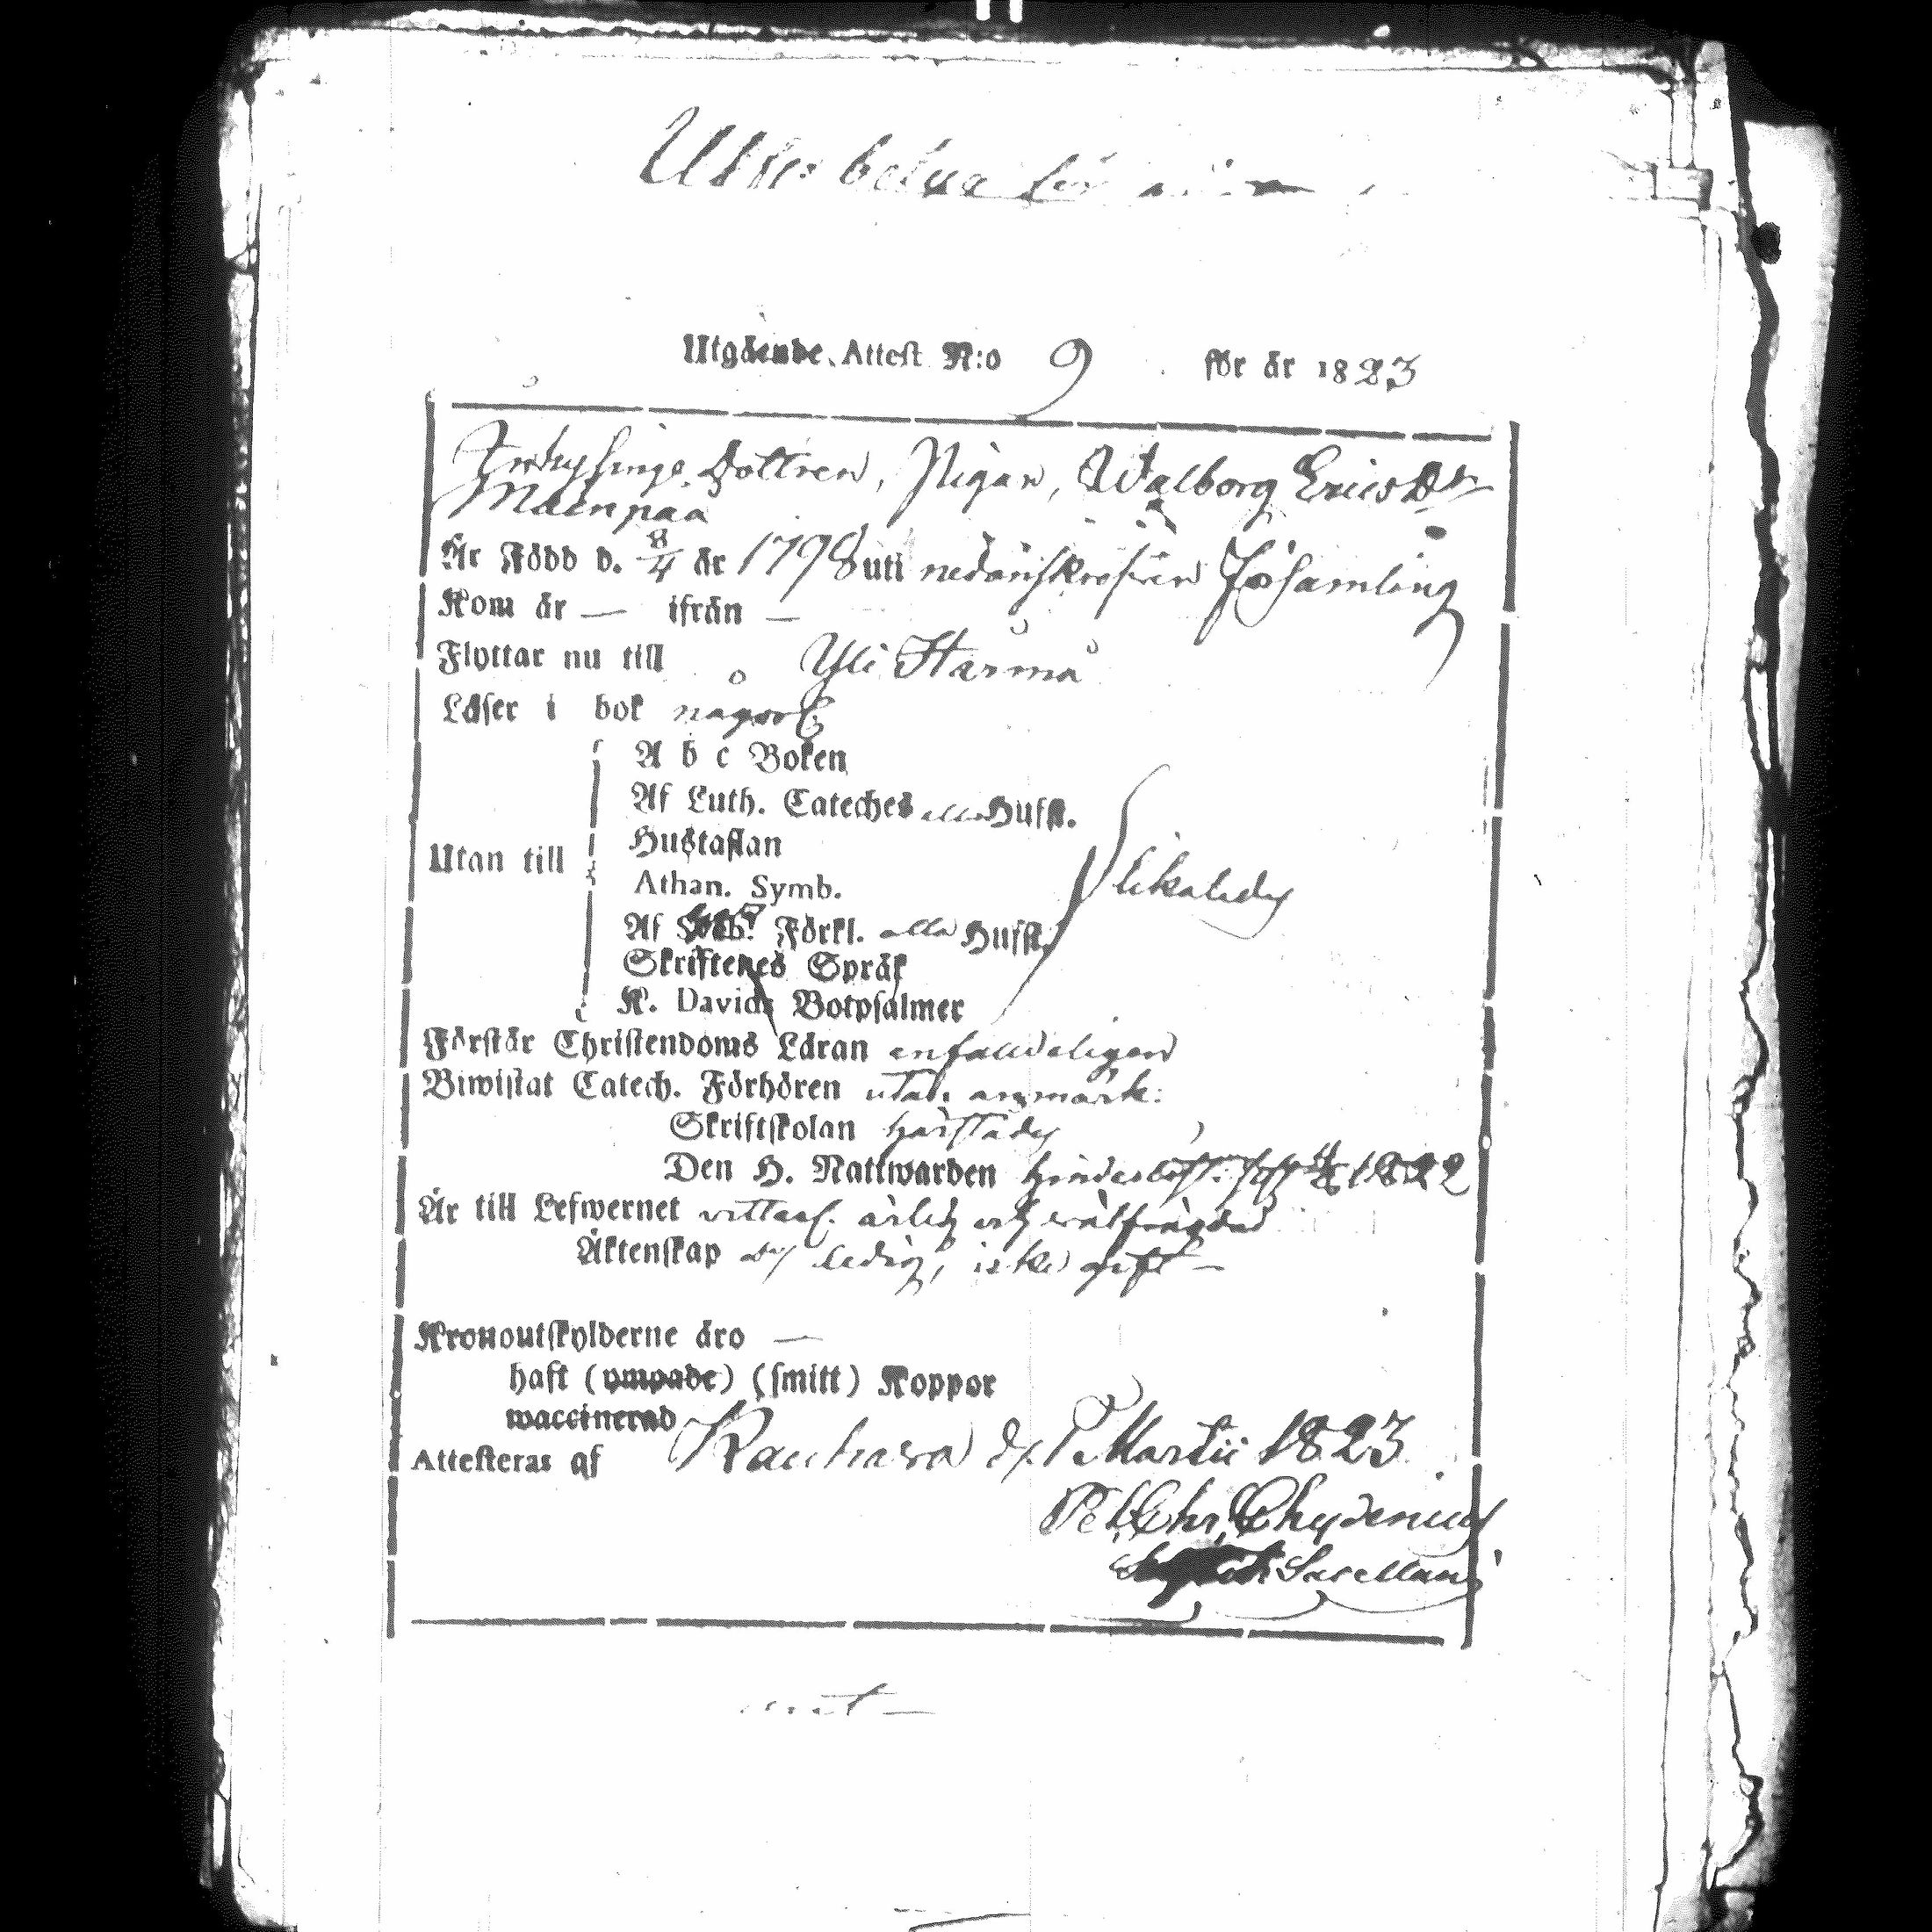 Utgående Attest N:o 9 för år 1823
Inhysings Dottren, Pigan, Walborg Ericsdr
Mäenpää
Är Född d. 8/4 år 1798 uti nedanskrefven Församling
Kom år — ifrån —
Flyttar nu till Yli Härmä
Läser i bok någorl.
A b c Boken
Af Luth. Cateches alla Hufst.
Hustaflan
Utan till
Athan. Symb. likaledes
Af Förkl. alla Hufst.
Skriftenes Språk
K. Davids Botpsalmer
Förstår Christendoms Läran enfaldeligen
Biwistat Catech. Förhören utan anmärk:
Skriftskolan härstädes
Den H. Nattwarden 1822
Är till Lefwernet ärlig och wälfrägdad
Äktenskap ledig, icke gift —
Kronoutskylderne äro —
haft (ympade) (smitt) Koppor
waccinerad
Attesteras af Kauhava d. Martii 1823
Pet. Chr. Chydenius
Sacellan